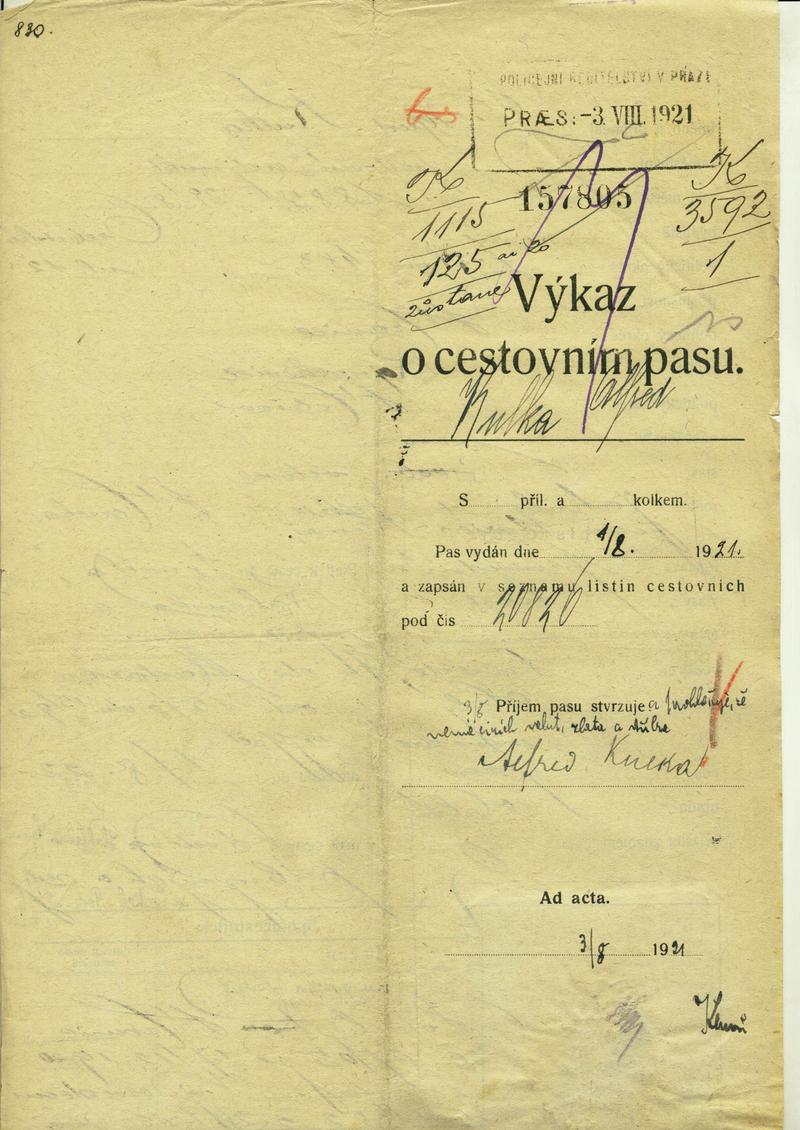 830.
POLICEJNÍ ŘEDITELSTVÍ V PRAZE
PRÆS: -3. VIII. 1921
157805
K
1115
K
3592
1
125
zůstane
Výkaz
o cestovním pasu.
Kulka Alfred
S příl. a kolkem.
Pas vydán dne 1/8. 1921.
a zapsán v seznamu listin cestovních
pod čís 20826
3/8 Příjem pasu stvrzuje a prohlašuje, že
valut, zlata a
Alfred Kulka
Ad acta.
3/8 1921